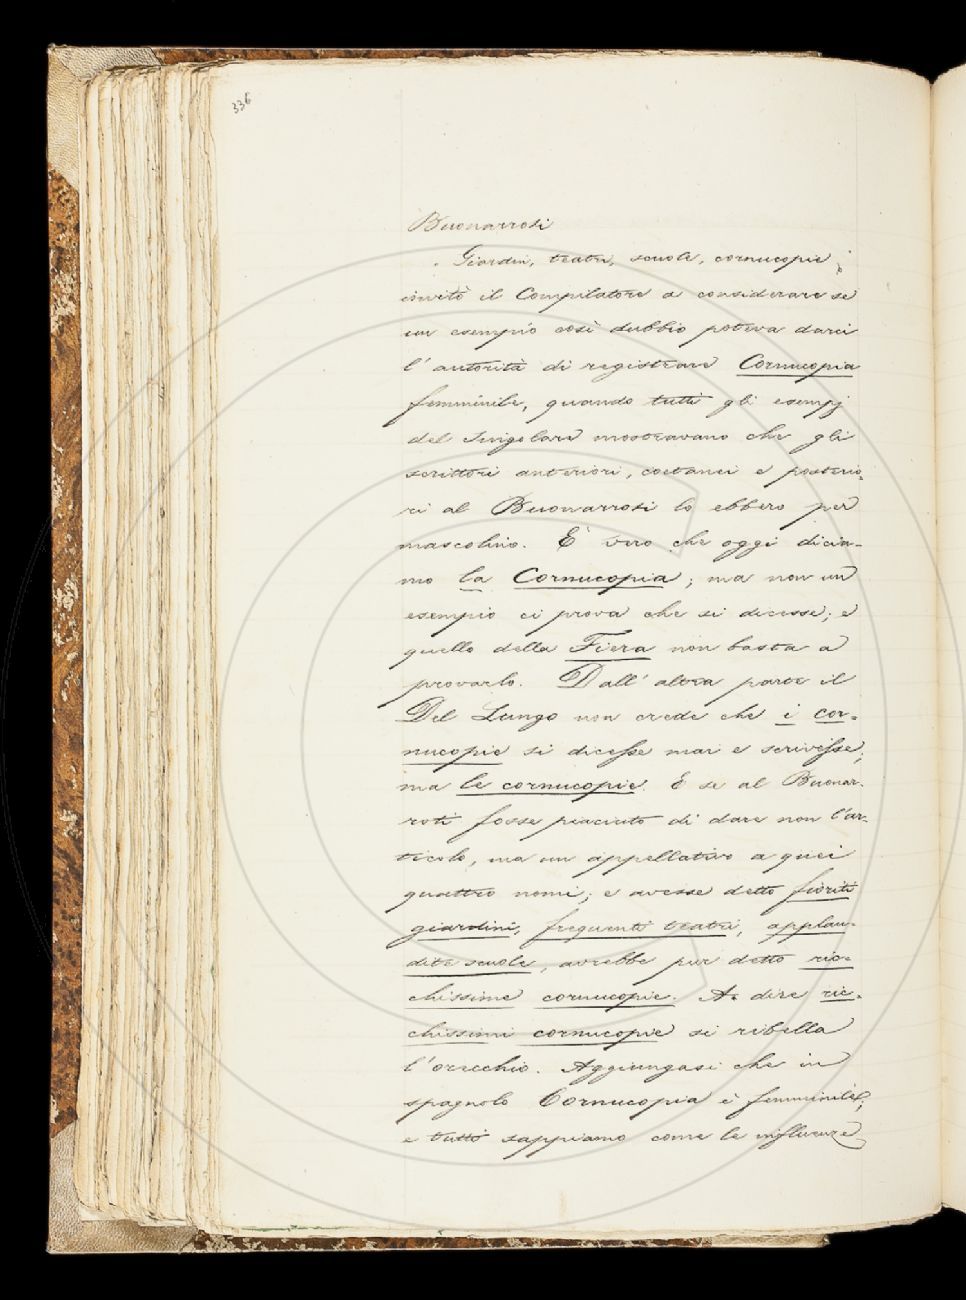 336
Buonarroti
Giardin, teatri, scuole, cornucopie;
invitò il Compilatore a considerare se
un esempio così dubbio poteva darci
l'autorità di registrare Cornucopia
femminile, quando tutti gli esempj
del singolare mostravano che gli
scrittori anteriori, coetanei e posterio-
ri al Buonarroti lo ebbero per
mascolino. È vero che oggi dicia-
mo la Cornucopia; ma non un
esempio ci prova che si dicesse; e
quello della Fiera non basta a
provarlo. Dall'altra parte il
Del Lungo non crede che i cor-
nucopie si dicesse mai e scrivesse;
ma le cornucopie. E se al Buonar-
roti fosse piaciuto di dare non l'ar-
ticolo, ma un appellativo a quei
quattro nomi; e avesse detto fioriti
giardini, frequenti teatri, applau-
dite scuole, avrebbe pur detto ric-
chissime cornucopie. A dire ric-
chissimi cornucopie si ribella
l'orecchio. Aggiungasi che in
spagnolo Cornucopia è femminile;
e tutti sappiamo come le influenze